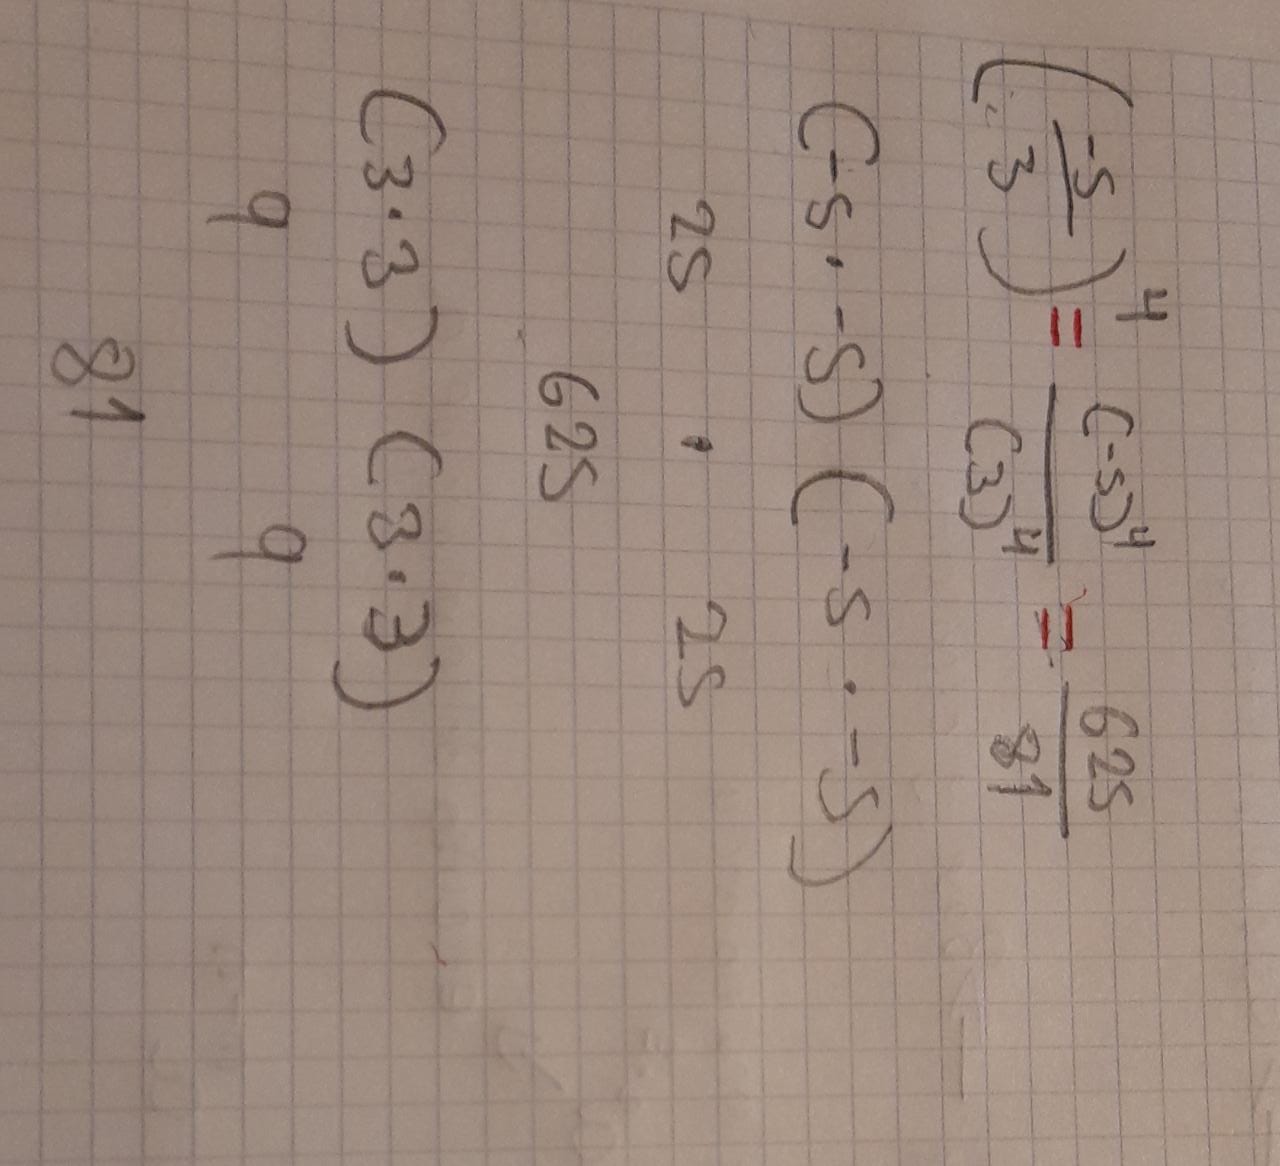 (-5/3)^4 = (-5)^4/(3)^4 = 625/81
(-5 · -5) (-5 · -5)
25 · 25
625
(3·3) (3·3)
9 9
81